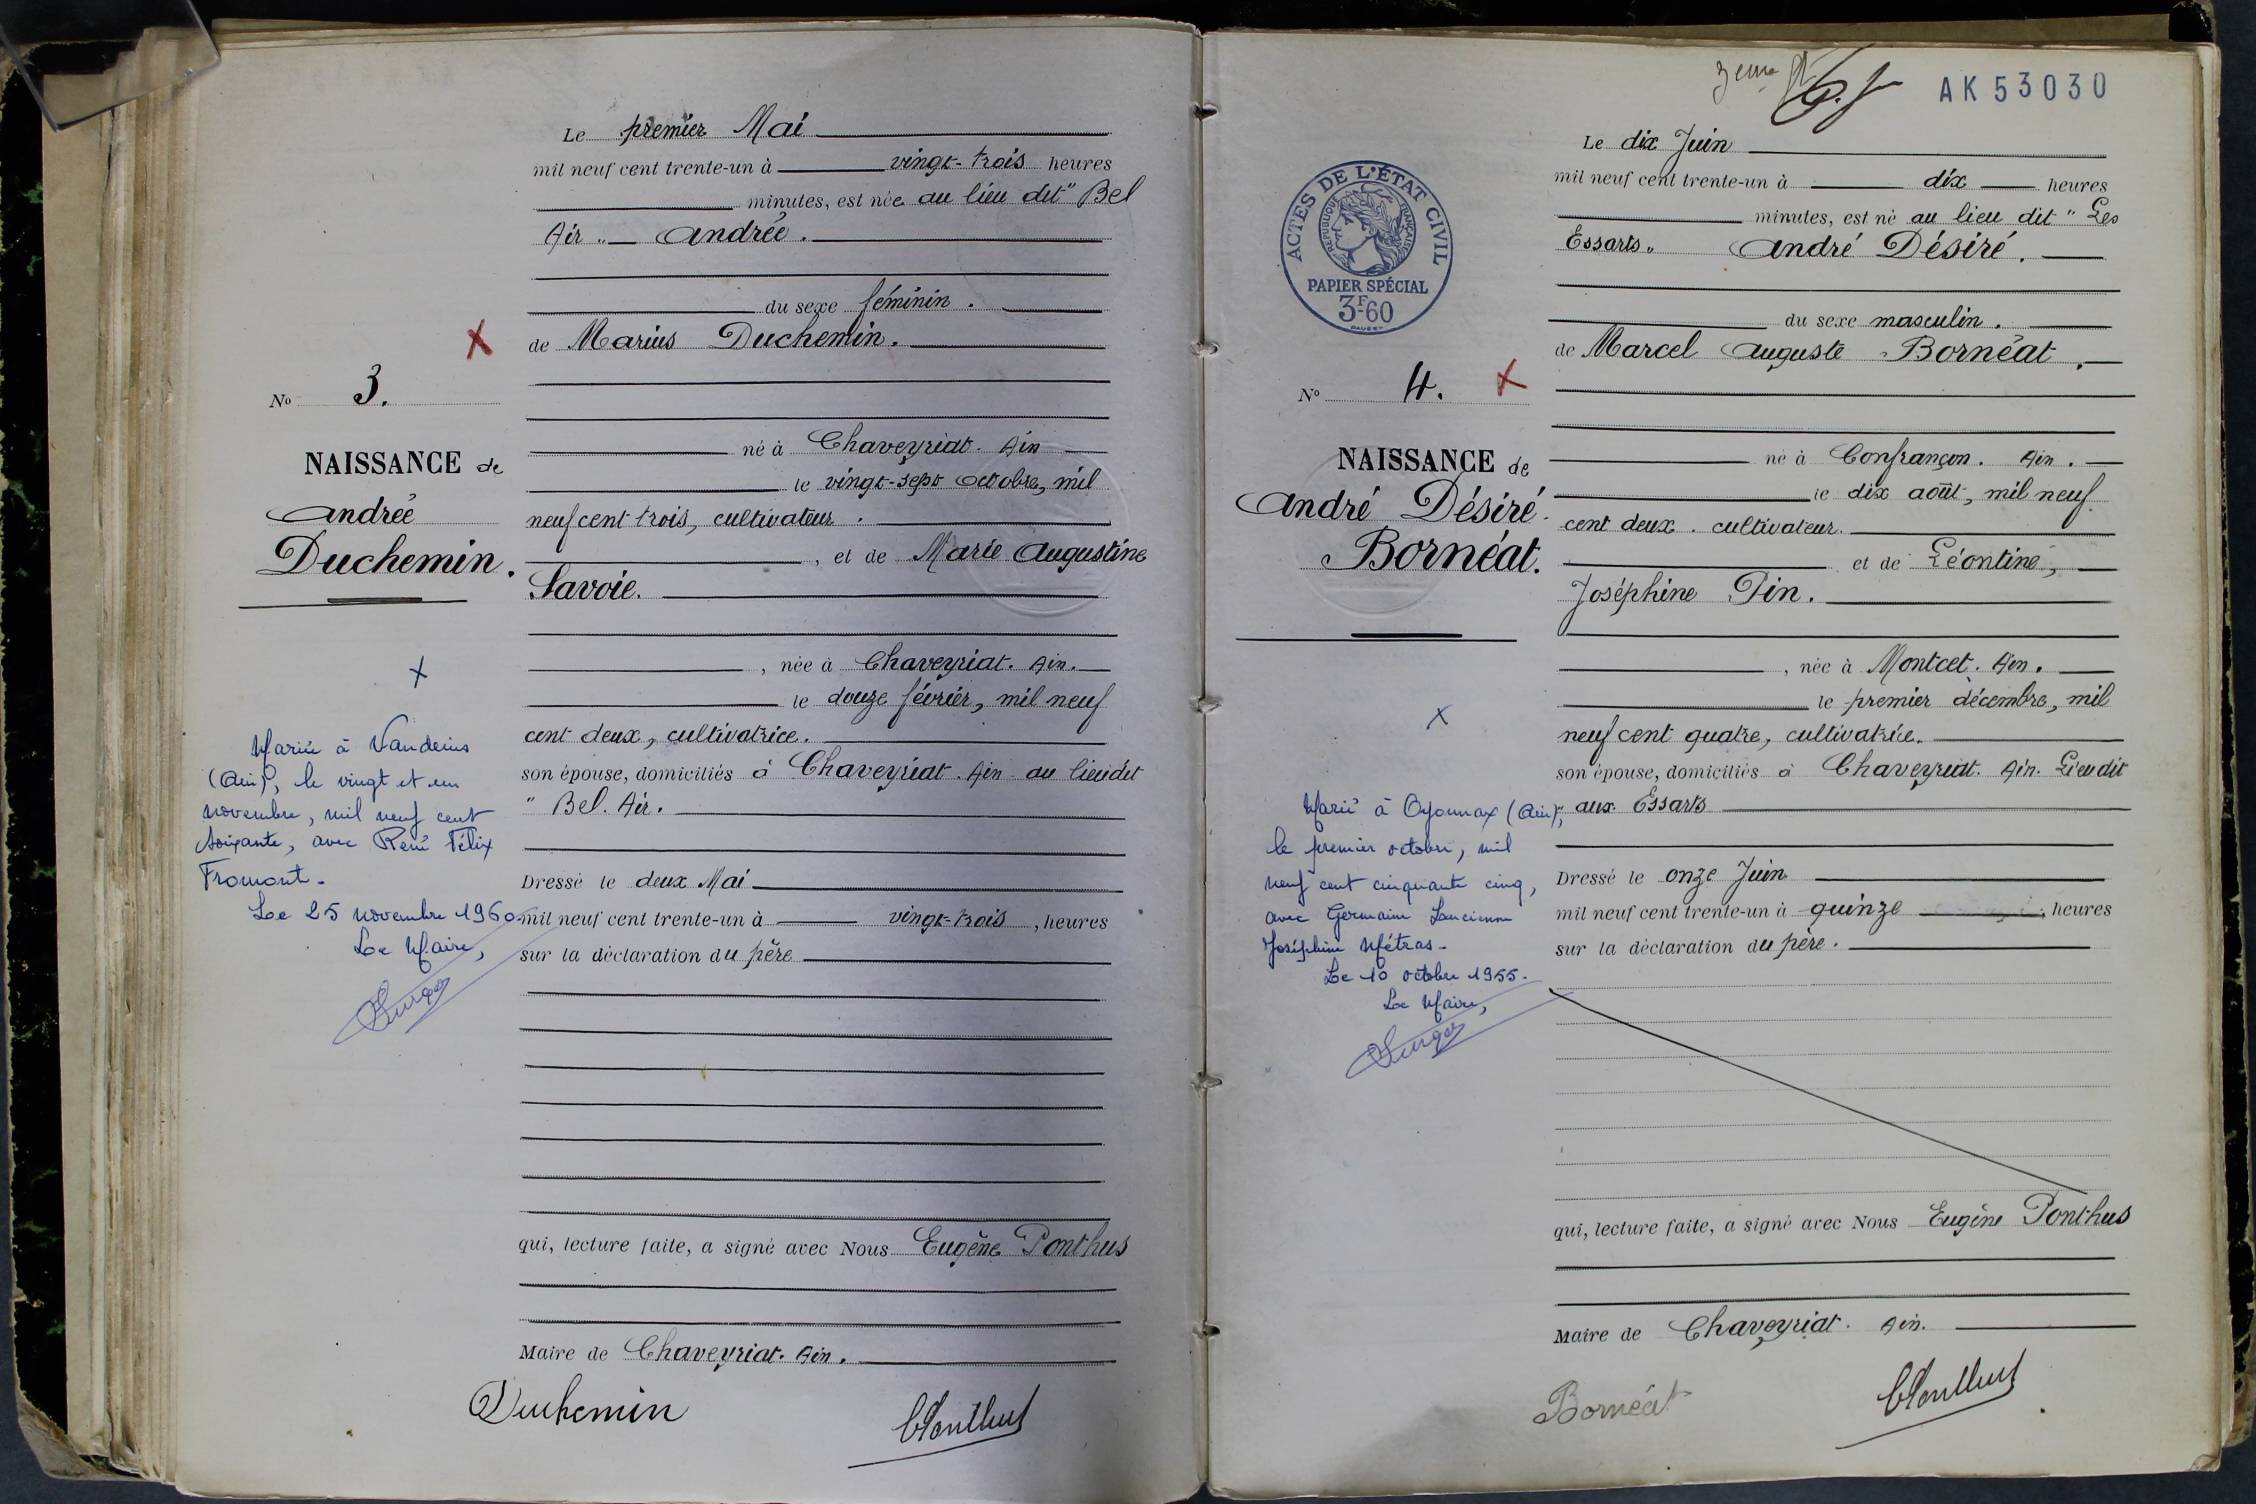 Le premier Mai
mil neuf cent trente-un à vingt-trois heures
minutes, est née au lieu dit " Bel
Air " Andrée.
du sexe féminin.
de Marius Duchemin.
No 3.
né à Chaveyriat. Ain
NAISSANCE de
le vingt-sept octobre, mil
Andrée
neuf cent trois, cultivateur.
Duchemin.
, et de Marie Augustine
Savoie.
, née à Chaveyriat. Ain.
le douze février, mil neuf
cent deux, cultivatrice.
son épouse, domiciliés à Chaveyriat. Ain au lieu dit
" Bel. Air.
Mariée à Vandeins
(Ain), le vingt et un
novembre, mil neuf cent
soixante, avec René Félix
Fromont.
Le 25 novembre 1960
Le Maire,
Dressé le deux Mai
mil neuf cent trente-un à vingt-trois, heures
sur la déclaration du père
qui, lecture faite, a signé avec Nous Eugène Ponthus
Maire de Chaveyriat. Ain.
Duchemin
EPonthus
3eme
AK53030
Le dix Juin
mil neuf cent trente-un à dix heures
minutes, est né au lieu dit " Les
Essarts " André Désiré.
du sexe masculin.
de Marcel Auguste Bornéat.
ACTES DE L'ÉTAT CIVIL
RÉPUBLIQUE FRANÇAISE
PAPIER SPÉCIAL
3F60
No 4.
né à Confrançon. Ain.
NAISSANCE de
le dix août, mil neuf
André Désiré
cent deux. cultivateur.
Bornéat.
et de Léontine,
Joséphine Pin.
, née à Montcet. Ain.
le premier décembre, mil
neuf cent quatre, cultivatrice.
son épouse, domiciliés à Chaveyriat. Ain. Lieu dit
" aux Essarts
Marié à Oyonnax (Ain),
le premier octobre, mil
neuf cent cinquante cinq,
avec Germaine Lucienne
Joséphine Métras.
Le 10 octobre 1955.
Le Maire,
Dressé le onze Juin
mil neuf cent trente-un à quinze, heures
sur la déclaration du père.
qui, lecture faite, a signé avec Nous Eugène Ponthus
Maire de Chaveyriat. Ain.
Bornéat
EPonthus